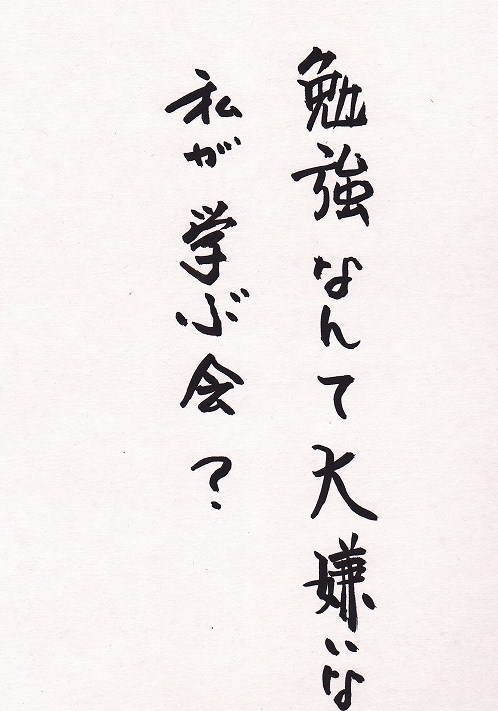 勉強なんて大嫌いな
私が学ぶ会？